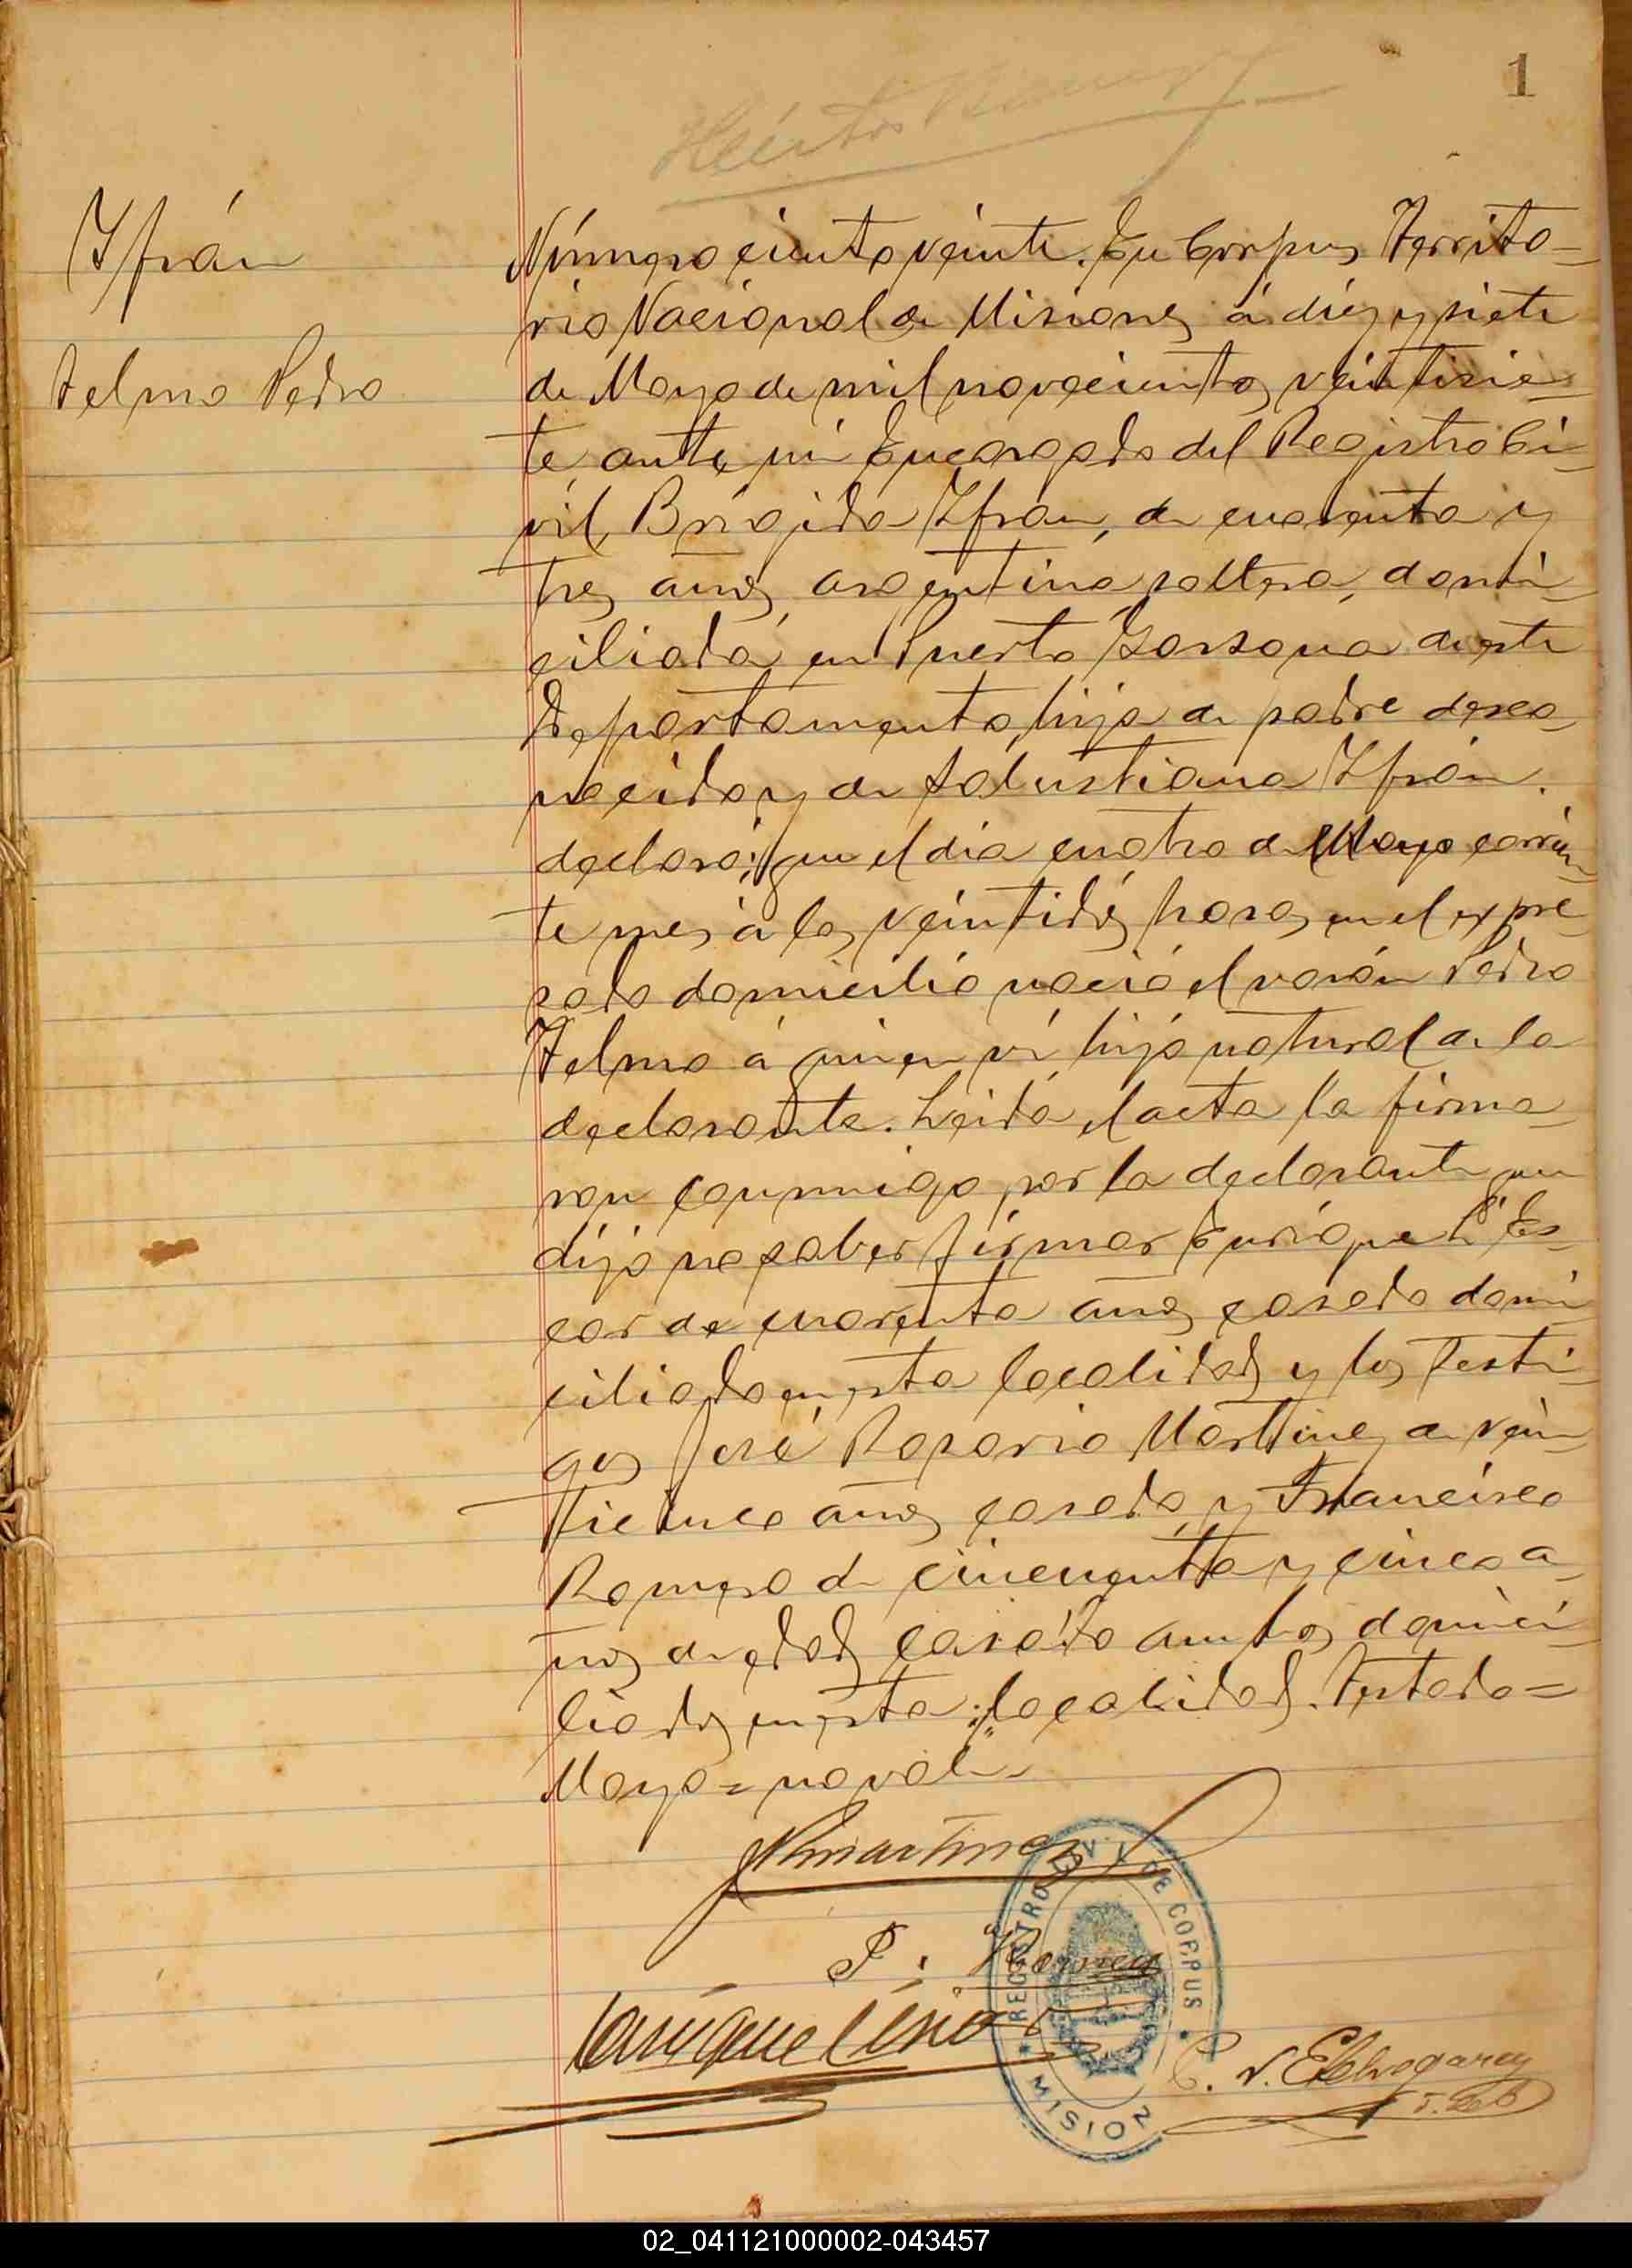 1
Ifrán
Telmo Pedro
Número ciento veinte. En Corpus, Territo=
rio Nacional de Misiones á diez y siete
de Mayo de mil novecientos veintisie=
te, ante mí Encargado del Registro Ci=
vil, Brígida Ifran, de cuarenta y
tres años, argentina, soltera, domi=
ciliada en Puerto de este
Departamento, hija de padre desco=
nocido y de Salustiana Ifrán.
declaró: que el día cuatro de Mayo corrien=
te mes á las veintidós horas en el expre=
sado domicilio nació el varón Pedro
Telmo á quien ví hijo natural de la
declarante. Leida el acta la firma=
ron conmigo por la declarante que
dijo no saber firmar Enrique
de cuarenta años casado domi
ciliado en esta localidad y los testi=
gos José Rosario Martinez de vein=
ticinco años casado y Francisco
Romero de cincuenta y cinco a=
ños de edad casado ambos domici=
liados en esta localidad. Testado=
Mayo=no vale
JRmartinez
F. Romero
Enrique
C. V. Etchegaray
REGISTRO CIVIL DE CORPUS
MISIONES
02_041121000002-043457